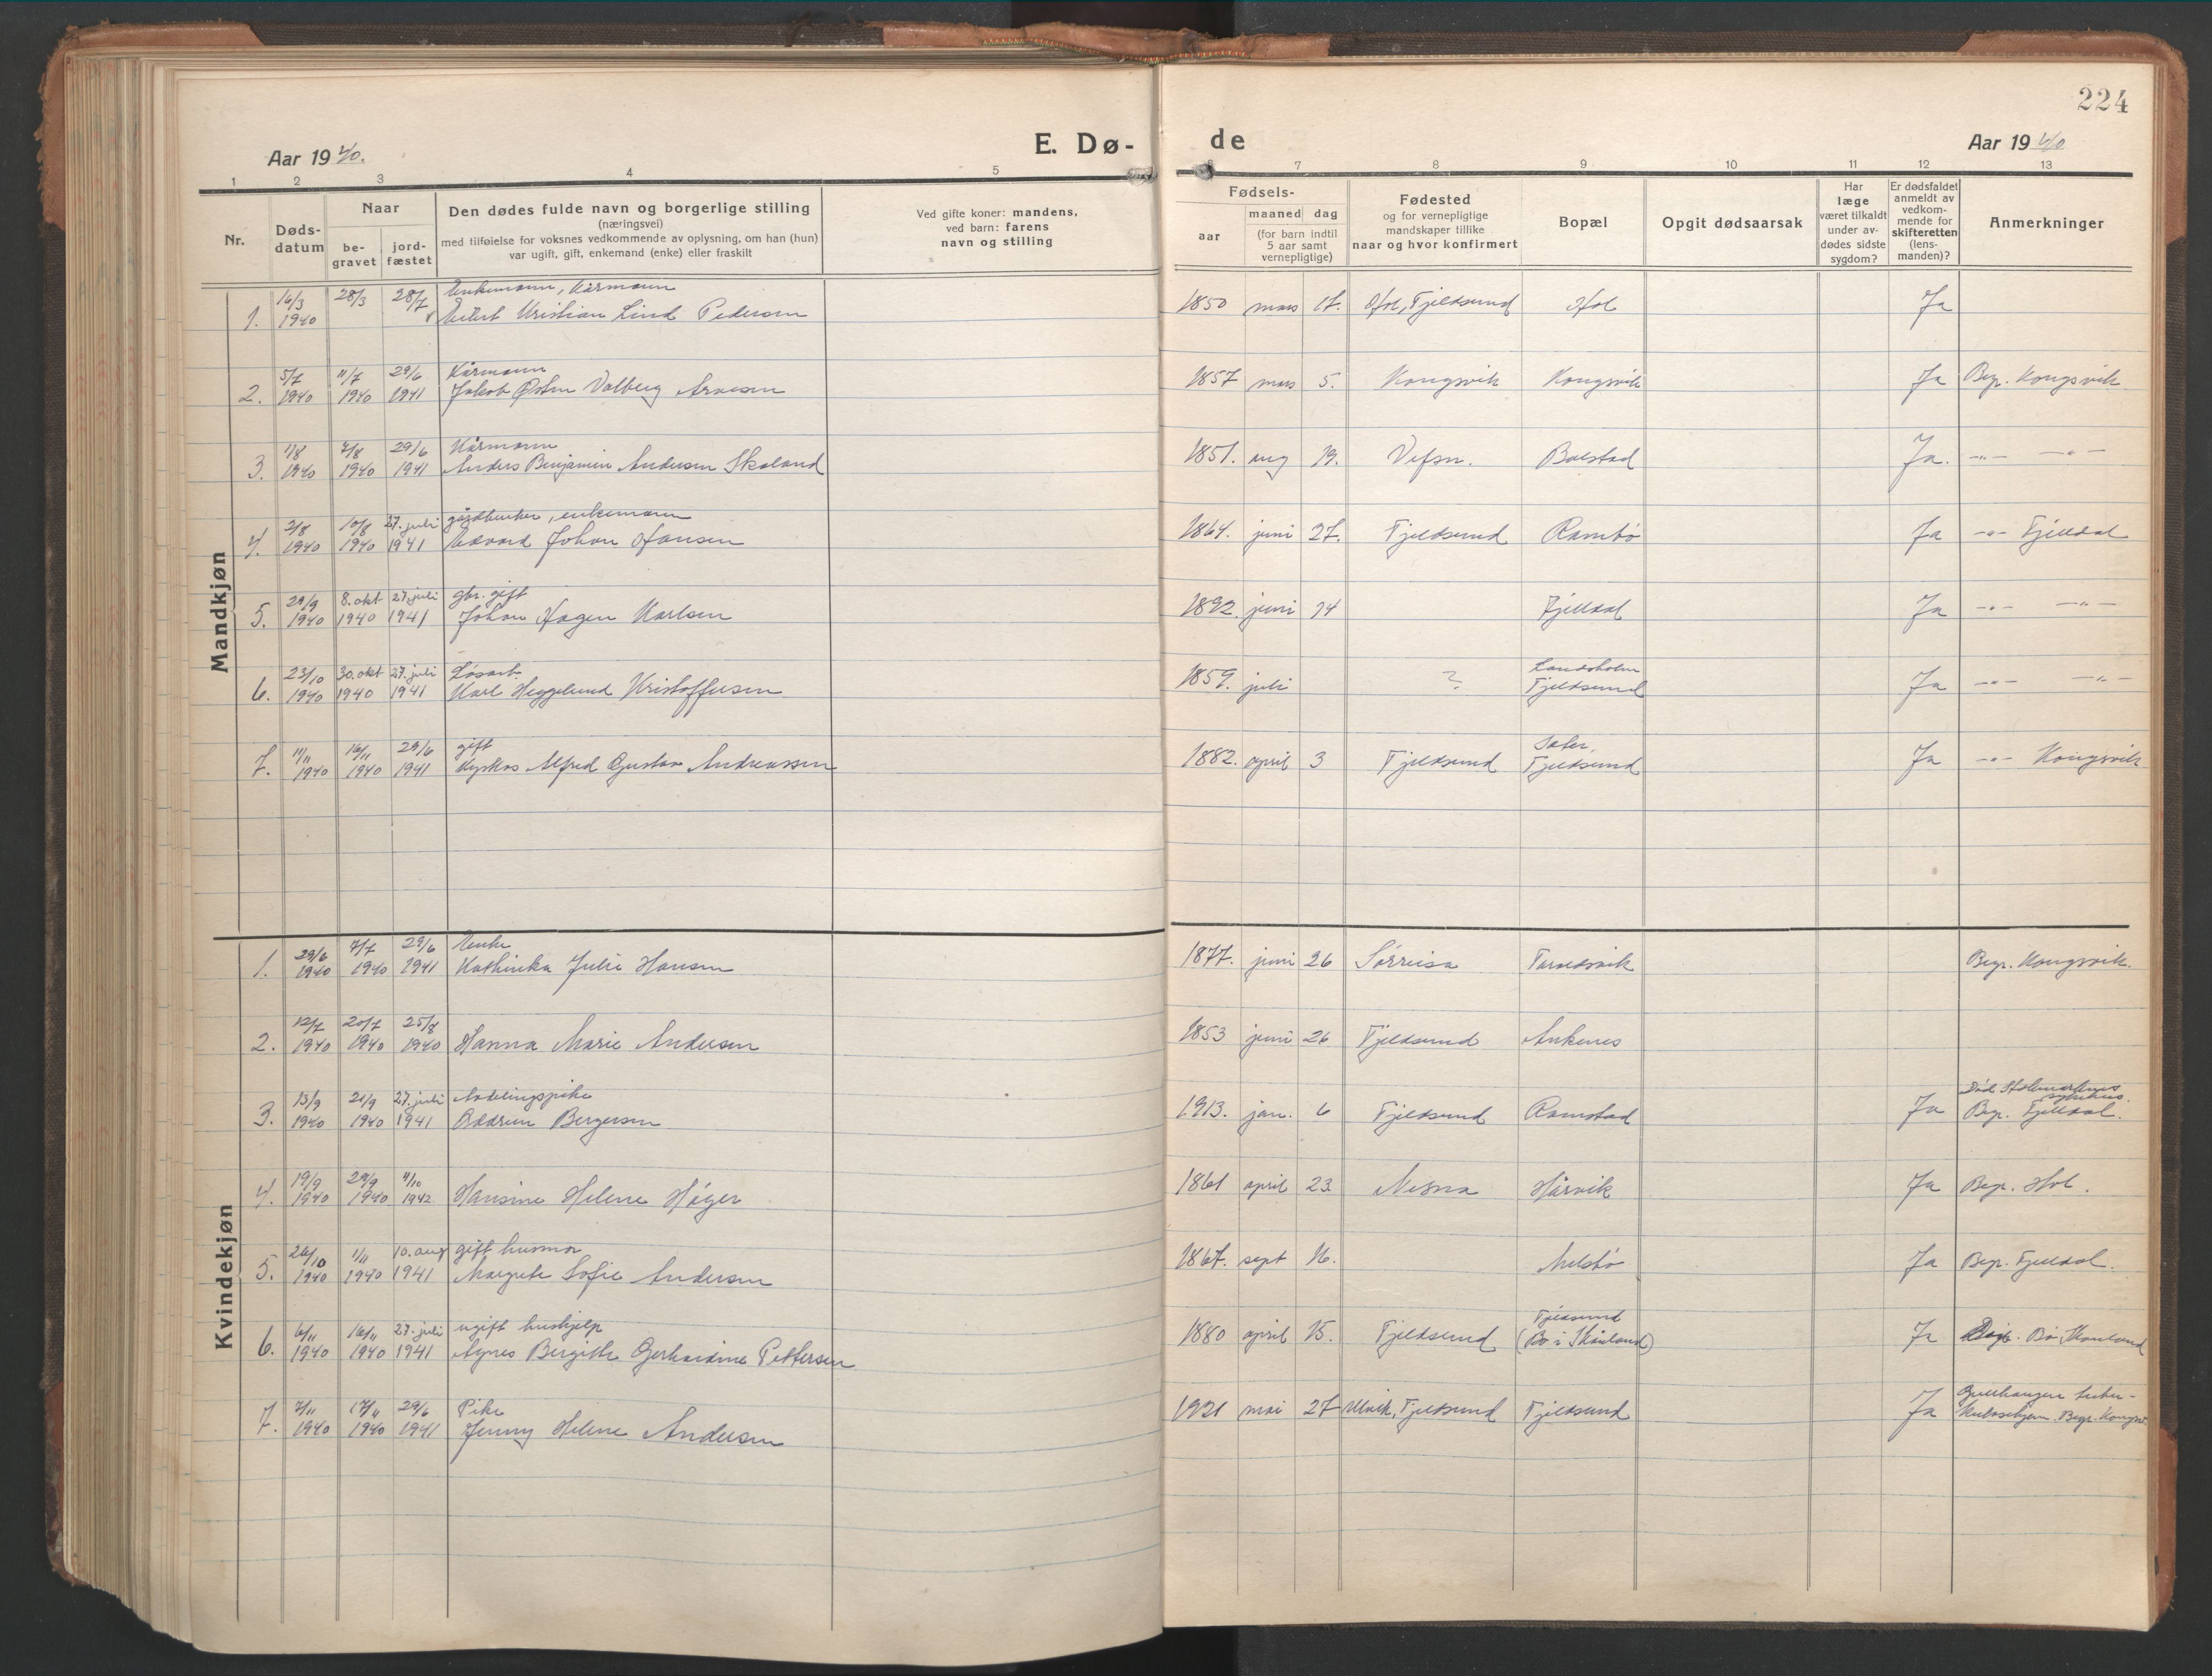 224
Aar 1940.
E. Dø-
de
Aar 1940
1 2 3 4 5 6 7 8 9 10 11 12 13
Nr.
Døds-
datum
Naar
be-
gravet
jord-
fæstet
Den dødes fulde navn og borgerlige stilling
(næringsvei)
med tilføielse for voksnes vedkommende av oplysning, om han (hun)
var ugift, gift, enkemand (enke) eller fraskilt
Ved gifte koner: mandens,
ved barn: farens
navn og stilling
Fødsels-
aar
maaned dag
(for barn indtil
5 aar samt
vernepligtige)
Fødested
og for vernepligtige
mandskaper tillike
naar og hvor konfirmert
Bopæl
Opgit dødsaarsak
Har
læge
været tilkaldt
under av-
dødes sidste
sygdom?
Er dødsfaldet
anmeldt av
vedkom-
mende for
skifteretten
(lens-
manden)?
Anmerkninger
Mandkjøn
16/3 28/3 28/7 Enkemann, Kårmann
1. 1940 Eilert Kristian Lind Pedersen 1850 mars 17. Hol, Fjeldsund Hol Ja
5/7 11/7 29/6 Kårmann
2. 1940 1940 1941 Jakob Østen Valberg Arnesen 1857 mars 5. Kongsvik Kongsvik Ja Begr. Kongsvik
1/8 7/8 29/6 Kårmann
3. 1940 1940 1941 Anders Benjamin Andersen Skoland 1851. aug 19. Vefsn. Balstad Ja. -"- -"-
2/8 10/8 27. juli gårdbruker, enkemann
4. 1940 1940 1941 Edvard Johan Hansen 1864. juni 27. Fjeldsund Rambø Ja -"- Fjelldal
29/9 8. okt 27. juli gbr. gift
5. 1940 1940 1941 Johan Hagen Karlsen 1892. juni 14 Fjelldal Ja -"- -"-
23/10 30. okt 27. juli Løsarb Sandsholm
6. 1940 1940 1941 Karl Heggelund Kristoffersen 1859. juli ? Fjeldsund Ja -"- -"-
11/11 16/11 29/6 gift Sater,
7. 1940 1940 1941 Alfred Gustav Andreassen 1882. april 3 Fjeldsund Fjeldsund Ja -"- Kongsvik
Kvindekjøn
29/6 7/7 29/6 Enke
1. 1940 1940 1941 Kathinka Julie Hansen 1877. juni 26 Sørreisa Tovedsvik Begr. Kongsvik.
12/7 20/7 25/8
2. 1940 1940 1940 Hanna Marie Andersen 1853 juni 26 Fjeldsund Ankenes
13/9 21/9 27. juli Avdelingspike Død Stokmarknes sykehus.
3. 1940 1940 1941 Oddrun Bergersen 1913. jan. 6 Fjeldsund Ramstad Ja Begr. Fjelldal.
19/9 29/9 11/10
4. 1940 1940 1942 Hansine Helene Høger 1861 april 23 Nesna Hårvik Ja Begr. Hol.
26/10 1/11 10. aug gift husmor
5. 1940 1940 1941 Margrete Sofie Andersen 1867. sept 16. Melsbø Ja Begr. Fjelldal.
6/11 16/11 27. juli ugift hushjelp Fjeldsund
6. 1940 1940 1941 Agnes Bergitte Gerhardine Pettersen 1880 april 15. Fjeldsund (Bø i Skånland) Ja Begr. Bø, Skånland
7/11 17/11 29/6 Pike
7. 1940 1940 1941 Jenny Helene Andersen 1921 mai 27 Ulvik, Fjeldsund Fjeldsund Ja tuber-
kulosehjem. Begr. Kongsv